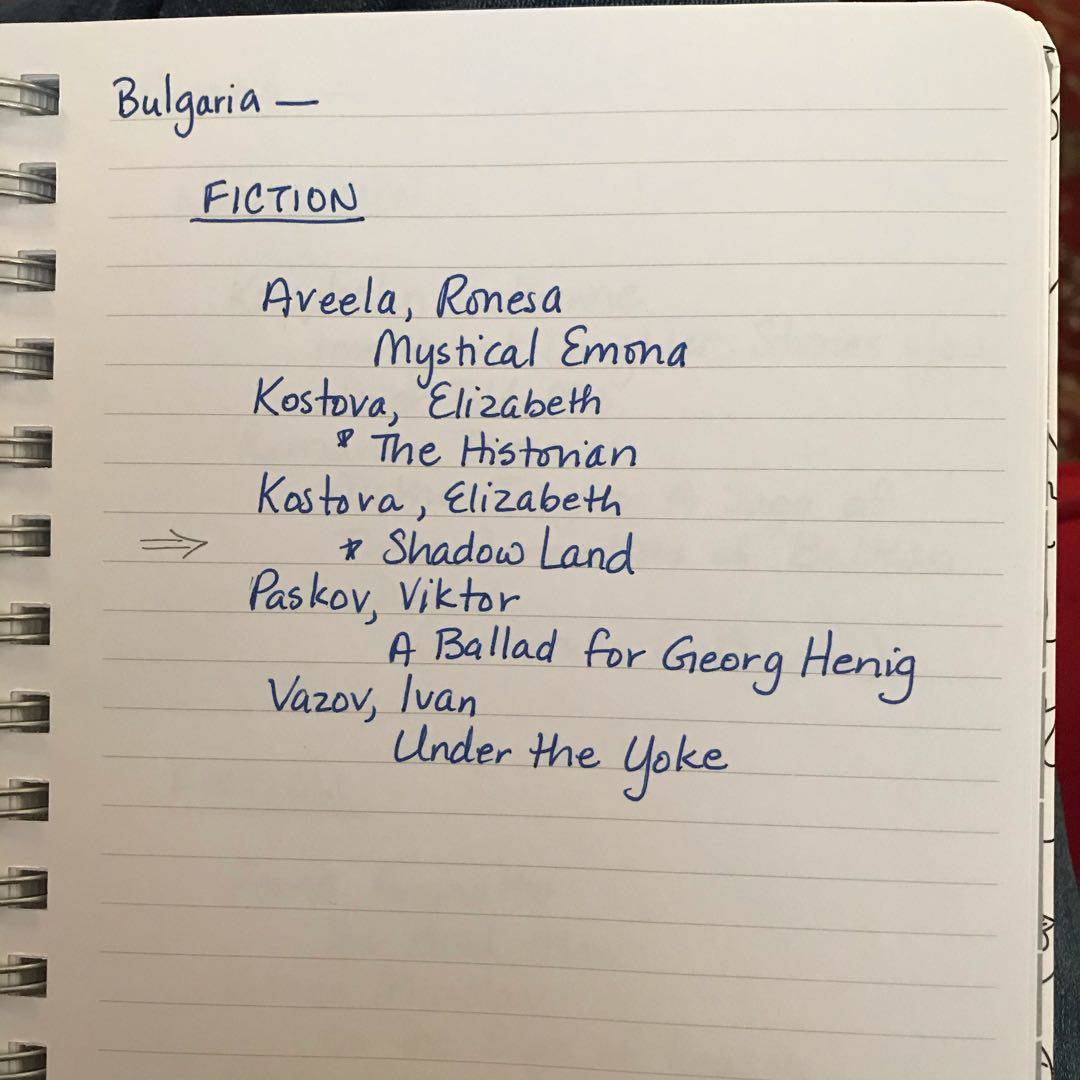 Bulgaria —
FICTION
Aveela, Ronesa
Mystical Emona
Kostova, Elizabeth
* The Historian
Kostova, Elizabeth
⇒ * Shadow Land
Paskov, Viktor
A Ballad for Georg Henig
Vazov, Ivan
Under the Yoke